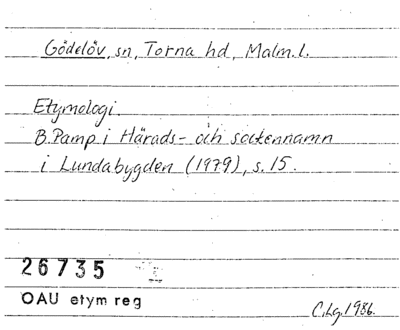 Gödelöv, sn, Torna hd, Malm. l.
Etymologi.
B. Pamp i Härads- och sockennamn
i Lundabygden (1979), s. 15.
26735
OAU etym reg
C.Lg. 1986.